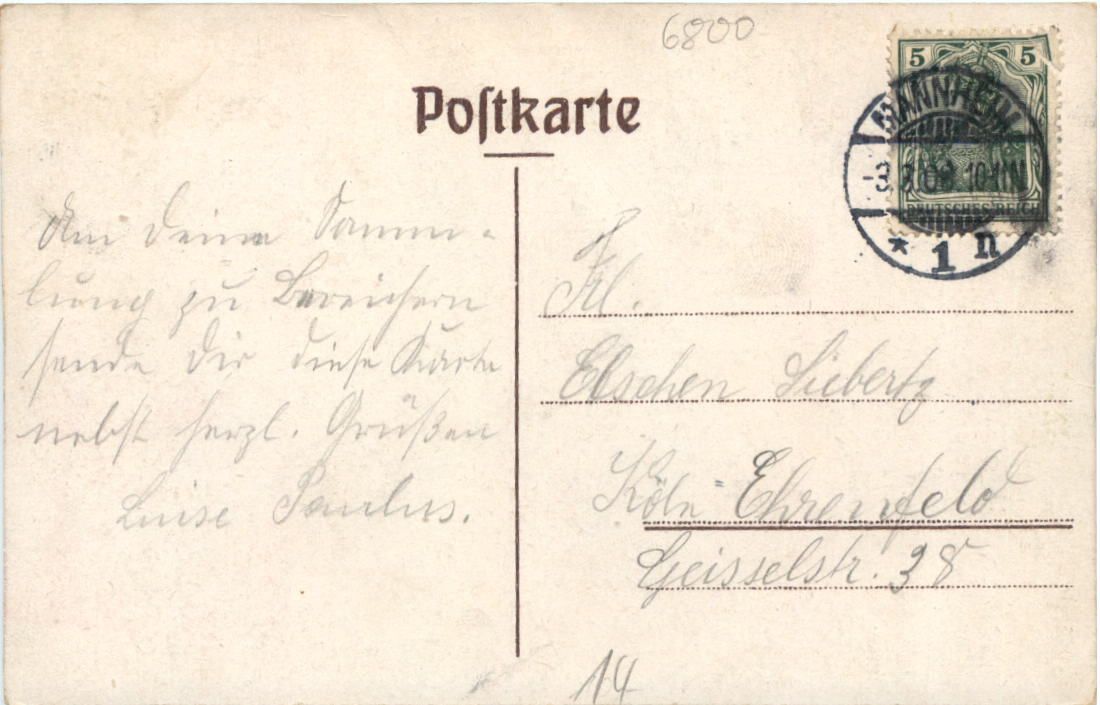 6800
Postkarte
5 5
MANNHEIM
DEUTSCHES REICH
* 1 n
Um deine Samm-
lung zu Bereichern
sende dir diese Karte
nebst herzl. Grüßen
Luise Paulus.
Frl.
Elschen Siebertz
Köln=Ehrenfeld
Geisselstr. 38
14